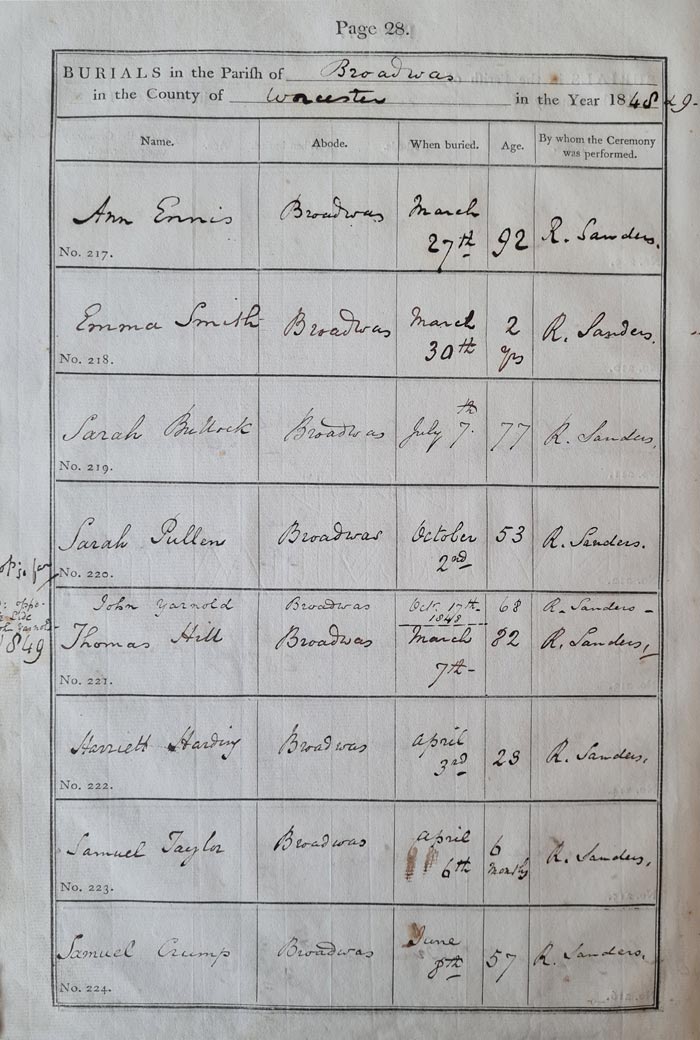 Page 28.
BURIALS in the Parish of Broadwas
in the County of Worcester in the Year 1848 & 9-
Name. Abode. When buried. Age. By whom the Ceremony was performed.
Ann Ennis Broadwas March 27th 92 R. Sanders.
No. 217.
Emma Smith Broadwas March 30th 2 yrs R. Sanders.
No. 218.
Sarah Bullock Broadwas July 7th 77 R. Sanders.
No. 219.
Sarah Pullen Broadwas October 2nd 53 R. Sanders.
No. 220.
John Yarnold Broadwas Octr. 17th 1848 68 R. Sanders -
1849 Thomas Hill Broadwas March 7th- 82 R. Sanders,
No. 221.
Harriett Harding Broadwas April 3rd 23 R. Sanders,
No. 222.
Samuel Taylor Broadwas April 6th 6 months R. Sanders,
No. 223.
Samuel Crump Broadwas June 8th 57 R. Sanders.
No. 224.